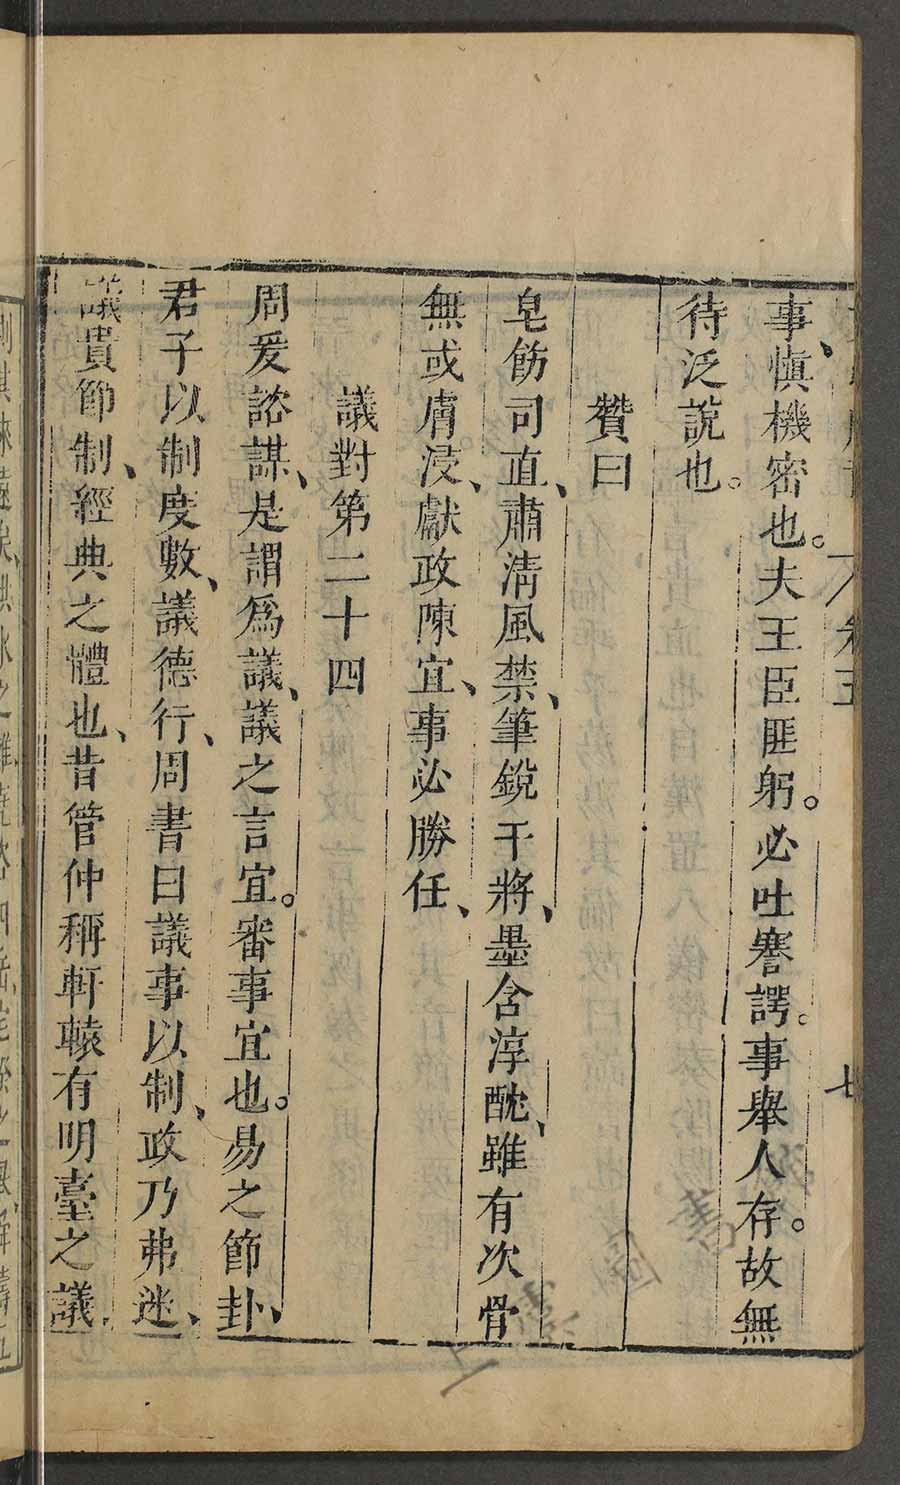 卷五
七
事慎機密也。夫王臣匪躬。必吐謇諤。事舉人存。故無
待泛說也。
贊曰
皂飭司直、肅清風禁、筆銳干將、墨含淳酖、雖有次骨
無或膚浸、獻政陳宜、事必勝任、
議對第二十四
周爰諮謀、是謂爲議、議之言宜。審事宜也。易之節卦、
君子以制度數、議德行、周書曰議事以制、政乃弗迷、
議貴節制、經典之體也、昔管仲稱軒轅有明臺之議